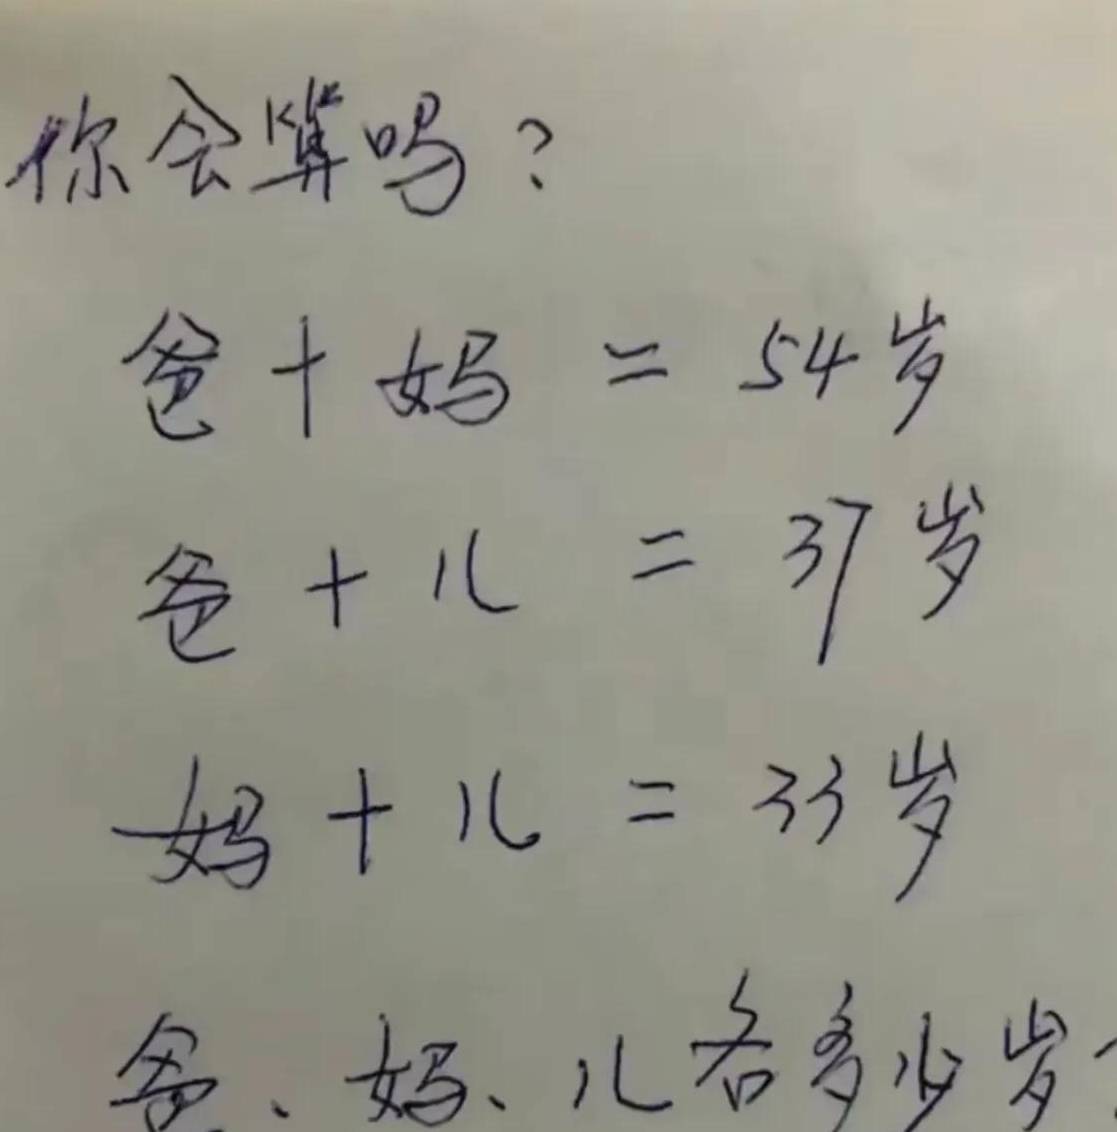 你会算吗？
爸+妈=54岁
爸+儿=37岁
妈+儿=33岁
爸、妈、儿各多少岁？